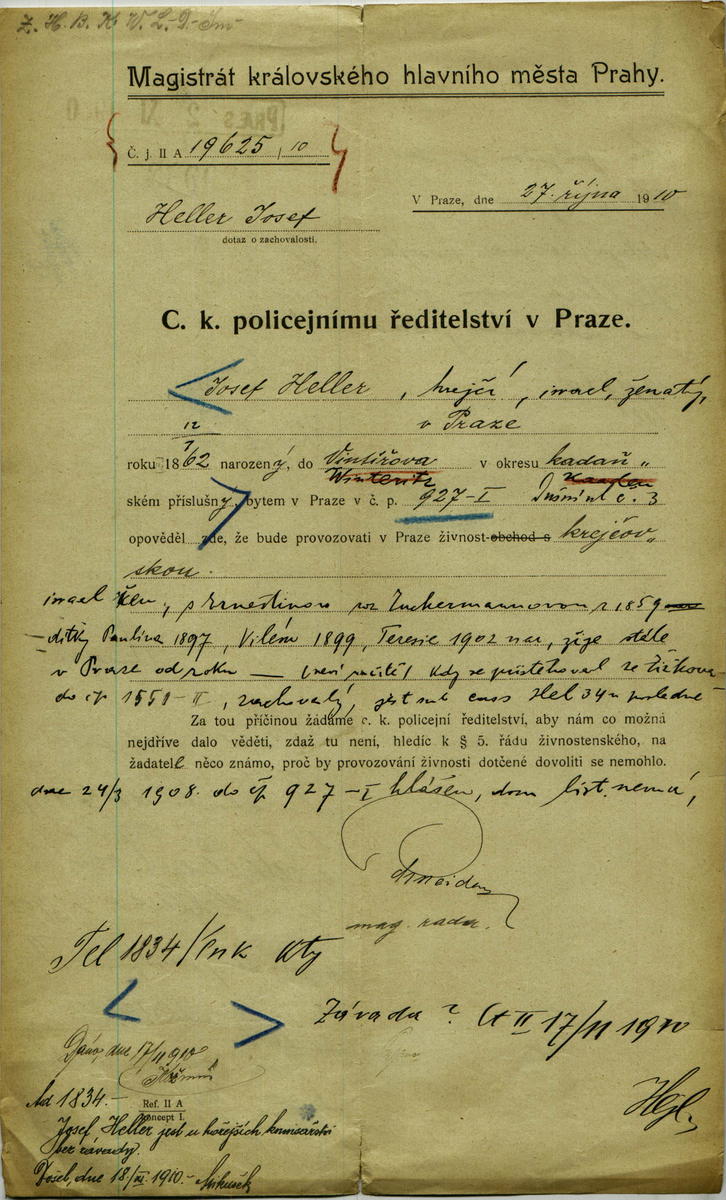 Z. H. B. K. W. L.-D.-
Magistrát královského hlavního města Prahy.
Č. j. II A 19625 / 10
V Praze, dne 27. října 1910
Heller Josef
dotaz o zachovalosti.
C. k. policejnímu ředitelství v Praze.
Josef Heller, krejčí, israel, ženatý,
12 v Praze
7
roku 1862 narozený, do Vintířova v okresu kadaň„
Winteritz Kaaden
ském příslušný, bytem v Praze v č. p. 927-I Dušní ul. č. 3
opověděl zde, že bude provozovati v Praze živnost obchod s krejčov„
skou.
israel žen, s Ernestinou roz Zuckermannovou r 1859
dítky Paulina 1897, Vilém 1899, Teresie 1902 nar, žije stále
v Praze od roku — (není) kdy se přistěhoval ze Žižkova
do čp 1551-II, zachovalý, posledně
Za tou příčinou žádáme c. k. policejní ředitelství, aby nám co možná
nejdříve dalo věděti, zdaž tu není, hledíc k § 5. řádu živnostenského, na
žadatele něco známo, proč by provozování živnosti dotčené dovoliti se nemohlo.
dne 24/3 1908. do čp 927-I hlášen, dom. list. nemá,
mag. rada.
Tel 1834/
Závada? II 17/11 1910
Dáno, dne 17/11 1910
Ad 1834.-
Ref. II A
Koncept I.
Josef Heller jest u hořejších komisařství
bez závady.
Došel, dne 18/XI. 1910.